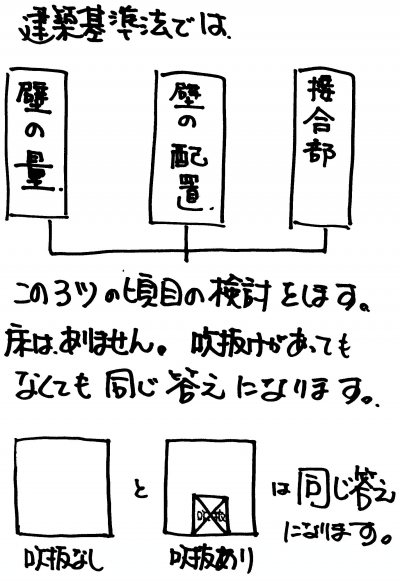 建築基準法では
壁の量.
壁の配置.
接合部
この3ツの項目の検討をします。
床は、ありません。吹抜けがあっても
なくても同じ答えになります。
と
吹抜
は同じ答え
になります。
吹抜なし
吹抜あり